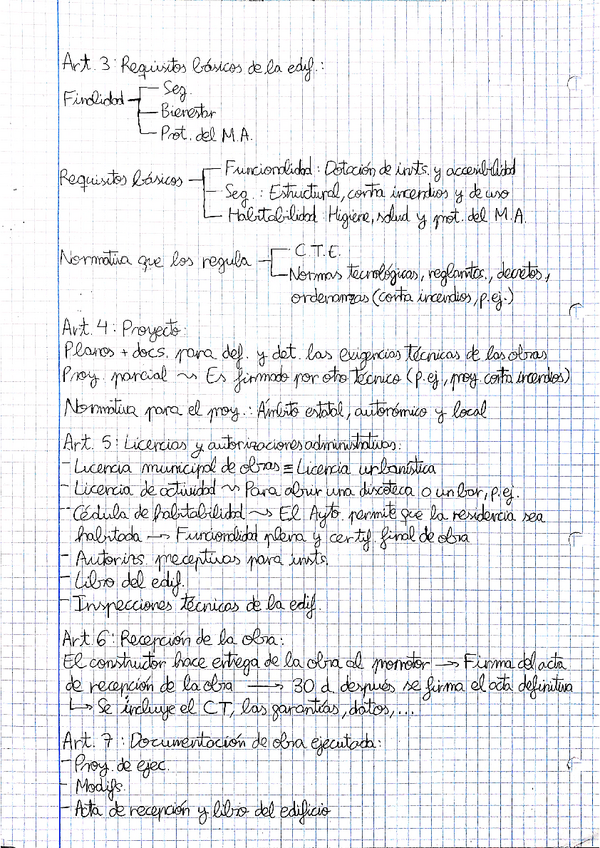 Art. 3: Requisitos básicos de la edif.:
Finalidad
Seg.
Bienestar
Prot. del M.A.
Requisitos básicos
Funcionalidad: Dotación de insts. y accesibilidad
Seg.: Estructural, contra incendios y de uso
Habitabilidad: Higiene, salud y prot. del M.A.
Normativa que los regula
C.T.E.
Normas tecnológicas, reglamtos., decretos,
ordenanzas (contra incendios, p.ej.)
Art. 4: Proyecto:
Planos + docs. para def. y det. las exigencias técnicas de las obras
Proy. parcial ~> Es firmado por otro técnico (p.ej., proy. contra incendios)
Normativa para el proy.: Ámbito estatal, autonómico y local
Art. 5: Licencias y autorizaciones administrativas:
- Licencia municipal de obras ≡ Licencia urbanística
- Licencia de actividad ~> Para abrir una discoteca o un bar, p.ej.
- Cédula de habitabilidad ~> El Ayto permite que la residencia sea
habitada → Funcionalidad plena y certif. final de obra
- Autorizs. preceptivas para insts.
- Libro del edif.
- Inspecciones técnicas de la edif.
Art. 6: Recepción de la obra:
El constructor hace entrega de la obra al promotor → Firma del acta
de recepción de la obra → 30 d. después se firma el acta definitiva
↳ Se incluye el CT, las garantías, datos,...
Art. 7: Documentación de obra ejecutada:
- Proy. de ejec.
- Modifs.
- Acta de recepción y libro del edificio